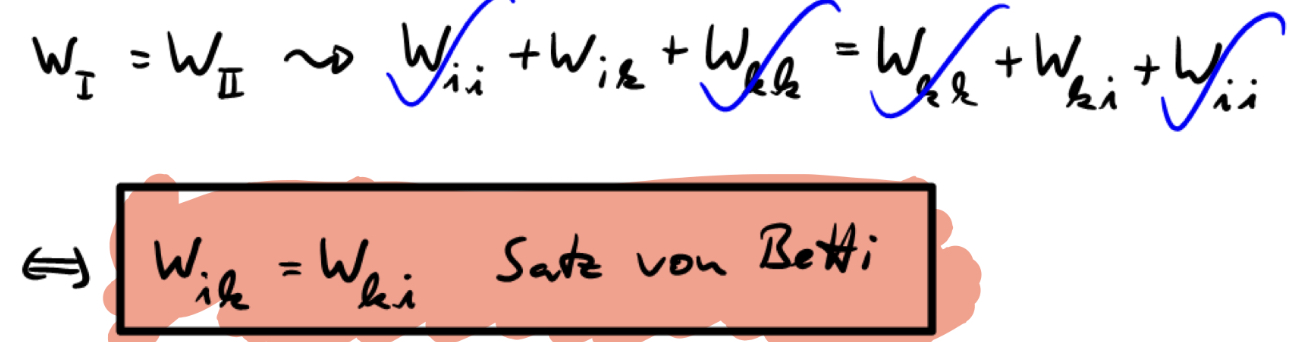 W_I = W_II ⇝ W_ii + W_ik + W_kk = W_kk + W_ki + W_ii
⇔ W_ik = W_ki Satz von Betti